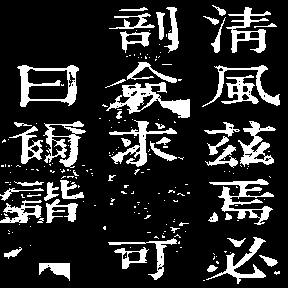 清風茲焉必
剖僉求可
曰爾諧